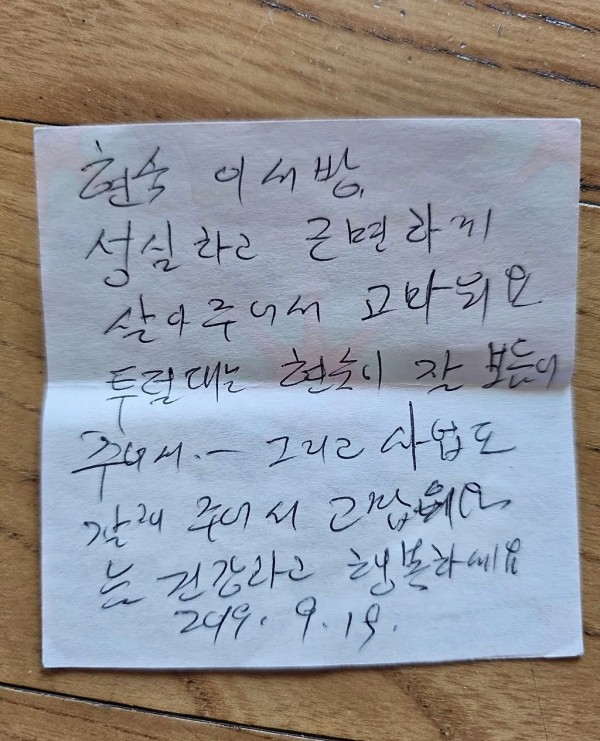 현숙 이서방.
성실하고 근면하게
살아주어서 고마워요
투덜대는 현숙이 잘 보듬어
주어서.— 그리고 사업도
잘해 주어서 고맙워요
늘 건강하고 행복하세요
2019. 9. 19.